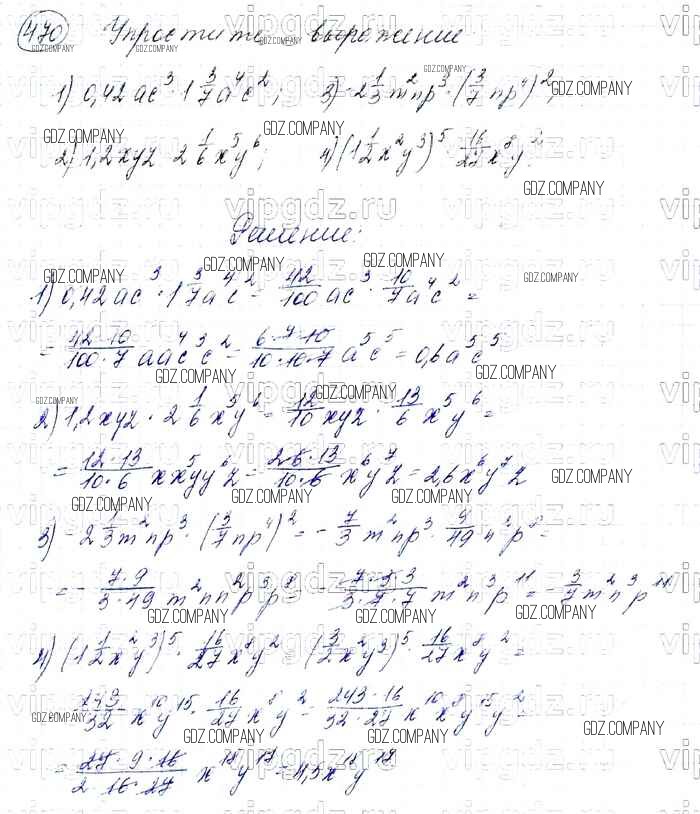 470 Упростите выражение
1) 0,42ac³ · 1 3/7 a⁴c²; 3) -2 1/3 m²np³ · (3/7 np⁴)²;
2) 1,2xyz · 2 1/6 x⁵y⁶; 4) (1 1/2 x²y³)⁵ · 16/27 x⁸y²
Решение:
1) 0,42ac³ · 1 3/7 a⁴c² = 42/100 ac³ · 10/7 a⁴c² =
= 42·10/100·7 aa⁴c³c² = 6·7·10/10·10·7 a⁵c⁵ = 0,6a⁵c⁵
2) 1,2xyz · 2 1/6 x⁵y⁶ = 12/10 xyz · 13/6 x⁵y⁶ =
= 12·13/10·6 xx⁵yy⁶z = 2·6·13/10·6 x⁶y⁷z = 2,6x⁶y⁷z
3) -2 1/3 m²np³ · (3/7 np⁴)² = -7/3 m²np³ · 9/49 n²p⁸ =
= -7·9/3·49 m²nn²p³p⁸ = -7·3·3/3·7·7 m²n³p¹¹ = -3/7 m²n³p¹¹
4) (1 1/2 x²y³)⁵ · 16/27 x⁸y² = (3/2 x²y³)⁵ · 16/27 x⁸y² =
243/32 x¹⁰y¹⁵ · 16/27 x⁸y² = 243·16/32·27 x¹⁰x⁸y¹⁵y² =
= 27·9·16/2·16·27 x¹⁸y¹⁷ = 4,5x¹⁸y¹⁷
GDZ.COMPANY
vipgdz.ru